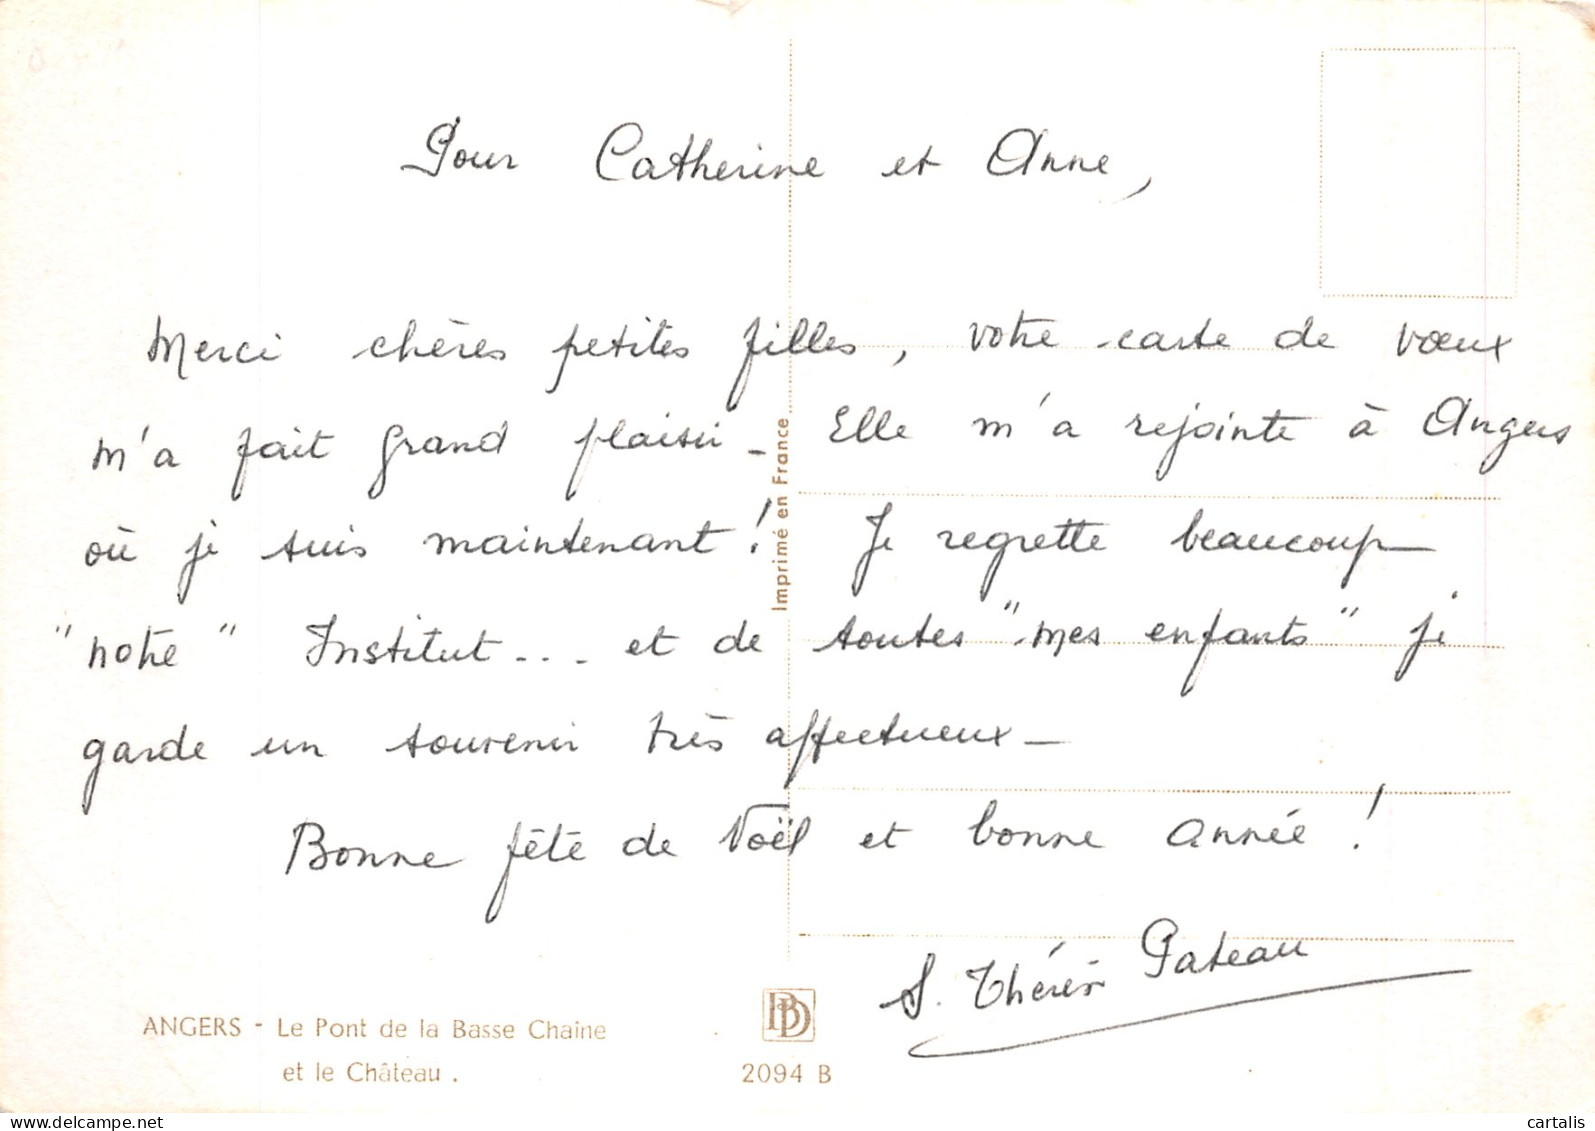 Pour Catherine et Anne,
Merci chères petites filles, votre carte de vœux
m'a fait grand plaisir _ Elle m'a rejointe à Angers
où je suis maintenant ! Je regrette beaucoup
"notre" Institut... et de toutes "mes enfants" je
garde un souvenir très affectueux _
Bonne fête de Noël et bonne année !
S. Thérèse Pateau
Imprimé en France
ANGERS - Le Pont de la Basse Chaîne
et le Château .
2094 B
cartalis